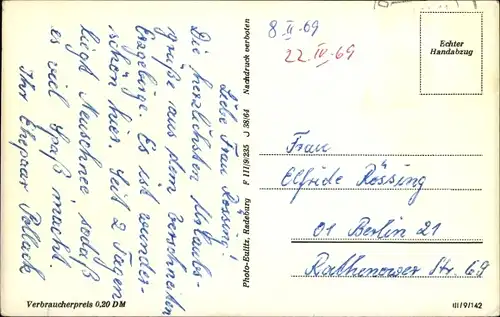 Liebe Frau Rössing!
Die herzlichsten Urlaubs-
grüße aus dem verschneiten
Erzgebirge. Es ist wunder-
schön hier. Seit 2 Tagen
liegt Neuschnee sodaß
es viel Spaß macht.
Ihr Ehepaar Pollack
Verbraucherpreis 0,20 DM
Photo-Eulitz, Radeburg F III/9/235 J 38/64 Nachdruck verboten
8 II -69
22. IV -69
Echter
Handabzug
Frau
Elfride Rössing
01 Berlin 21
Rathenower Str. 69
III/9/142